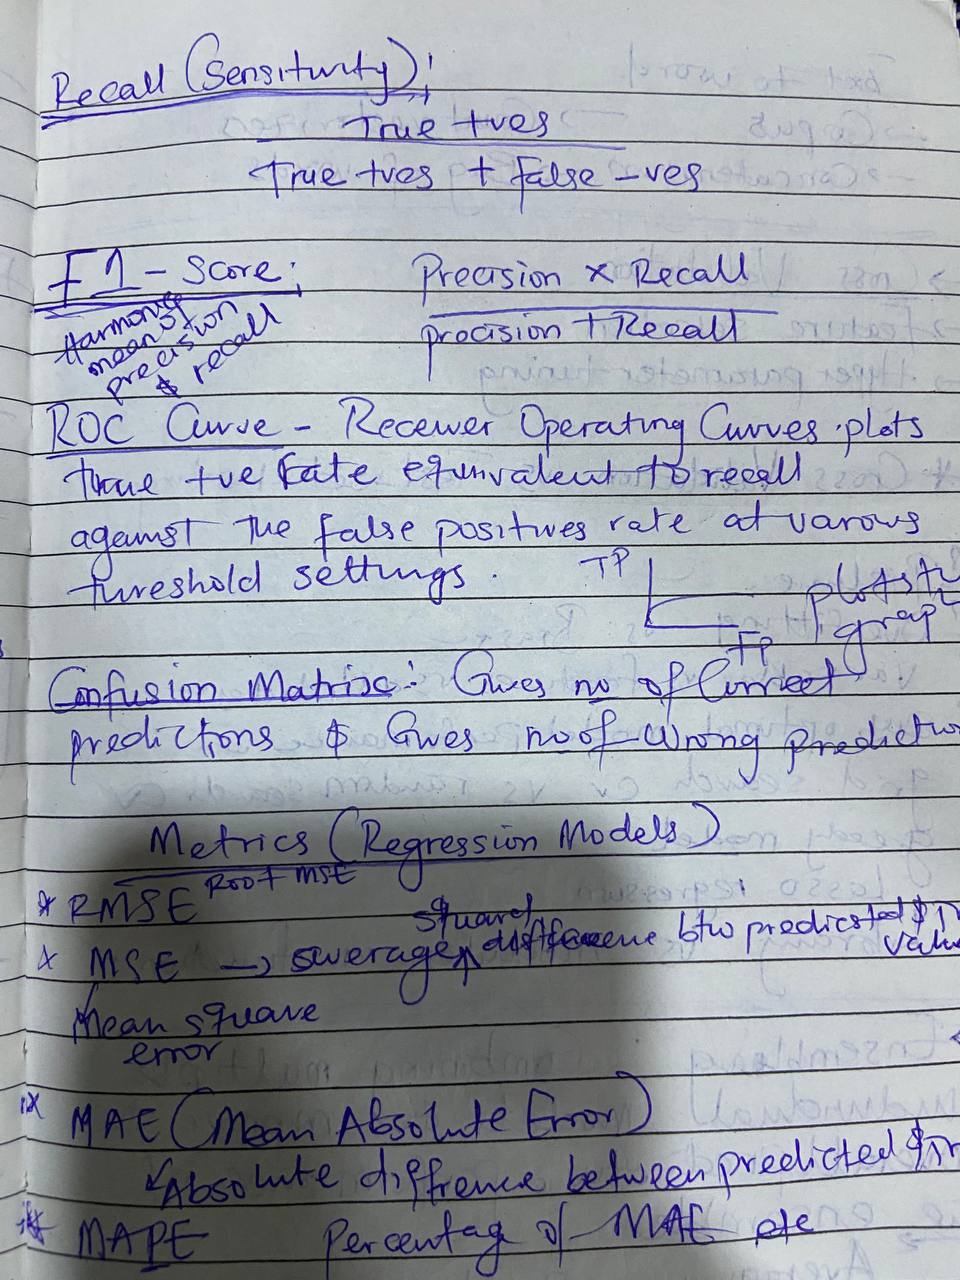 Recall (Sensitivity):
True +ves
True +ves + False -ves
F1 - Score: Precision × Recall
precision + Recall
Harmonic
mean of
precision
& recall
ROC Curve - Receiver Operating Curves plots
true +ve rate equivalent to recall
against the false positives rate at various
threshold settings. TP
FP
plots
Confusion Matrix: Gives no of Correct
predictions & Gives no of wrong
Metrics (Regression Models)
* RMSE Root MSE
* MSE → average squared difference btw predicted &
Mean square
error
* MAE (Mean Absolute Error)
Absolute diffrence between predicted &
* MAPE Percentage of MAE etc